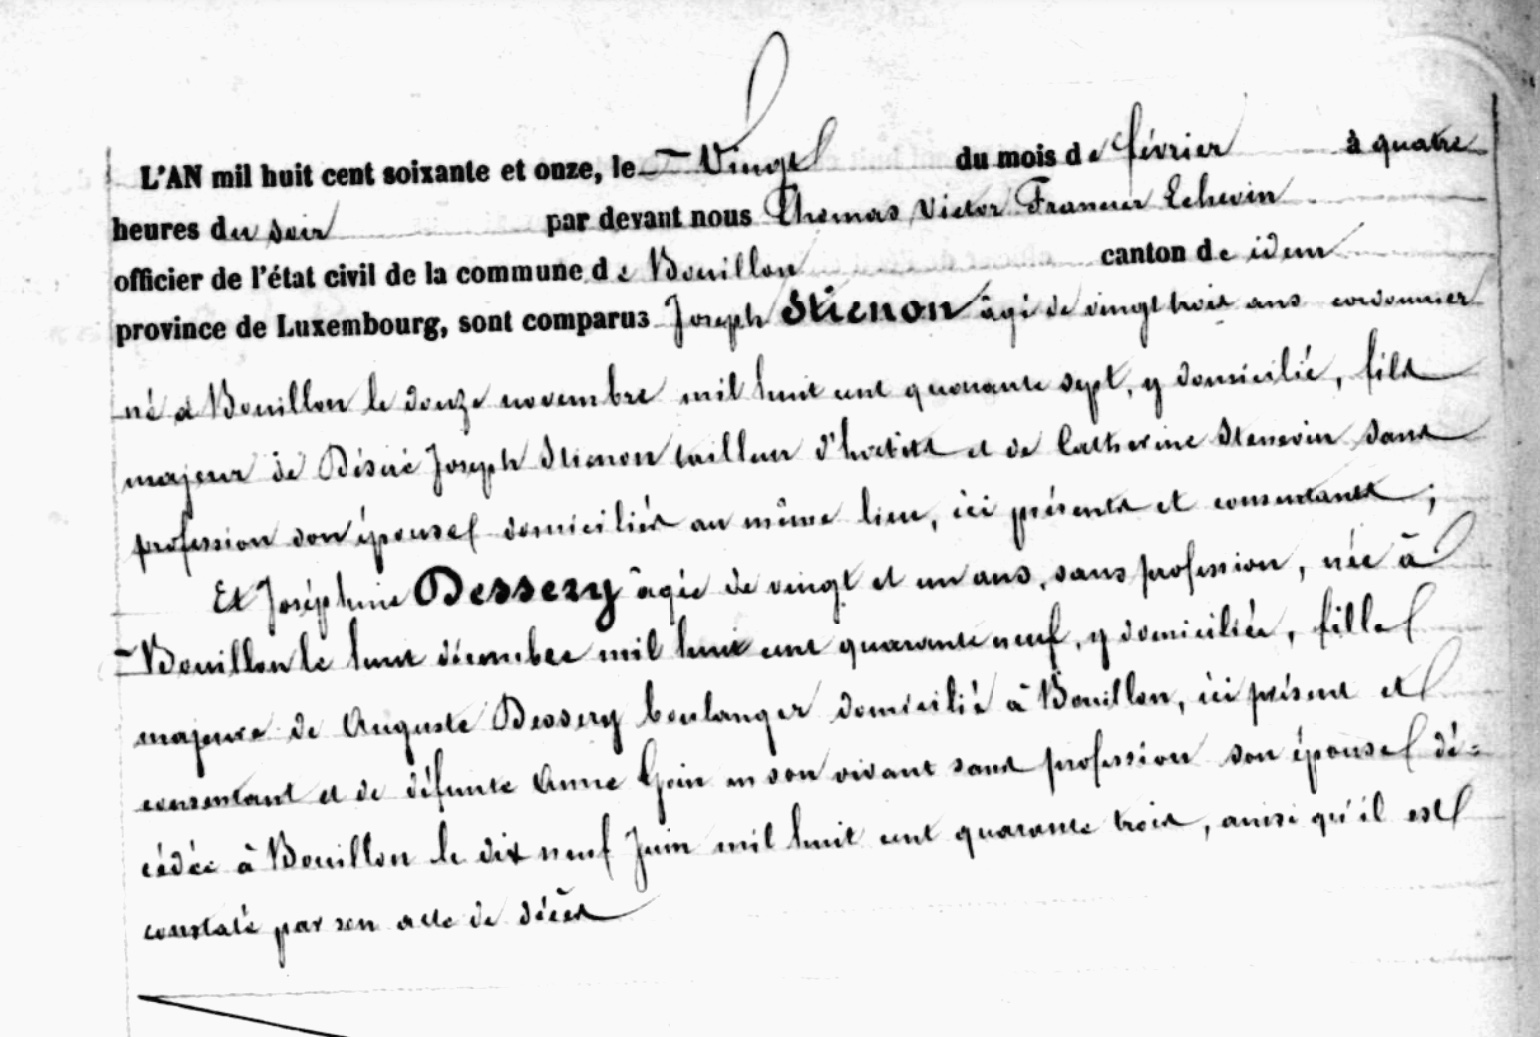 L'AN mil huit cent soixante et onze, le Vingt du mois de février à quatre
heures du soir par devant nous Thomas Victor Francois Echevin
officier de l'état civil de la commune de Bouillon canton de idem
province de Luxembourg, sont comparus Joseph Stienon âgé de vingt trois ans cordonnier
né à Bouillon le douze novembre mil huit cent quarante sept, y domicilié, fils
majeur de Désiré Joseph Stienon tailleur d'habits et de Catherine sans
profession son épouse domiciliés au même lieu, ici présents et consentants ;
Et Joséphine Dessery âgée de vingt et un ans, sans profession, née à
Bouillon le huit décembre mil huit cent quarante neuf, y domiciliée, fille
majeure de Auguste Dessery boulanger domicilié à Bouillon, ici présent et
consentant et de défunte Anne Goin en son vivant sans profession son épouse dé=
cédée à Bouillon le dix neuf Juin mil huit cent quarante trois, ainsi qu'il est
constaté par son acte de décès